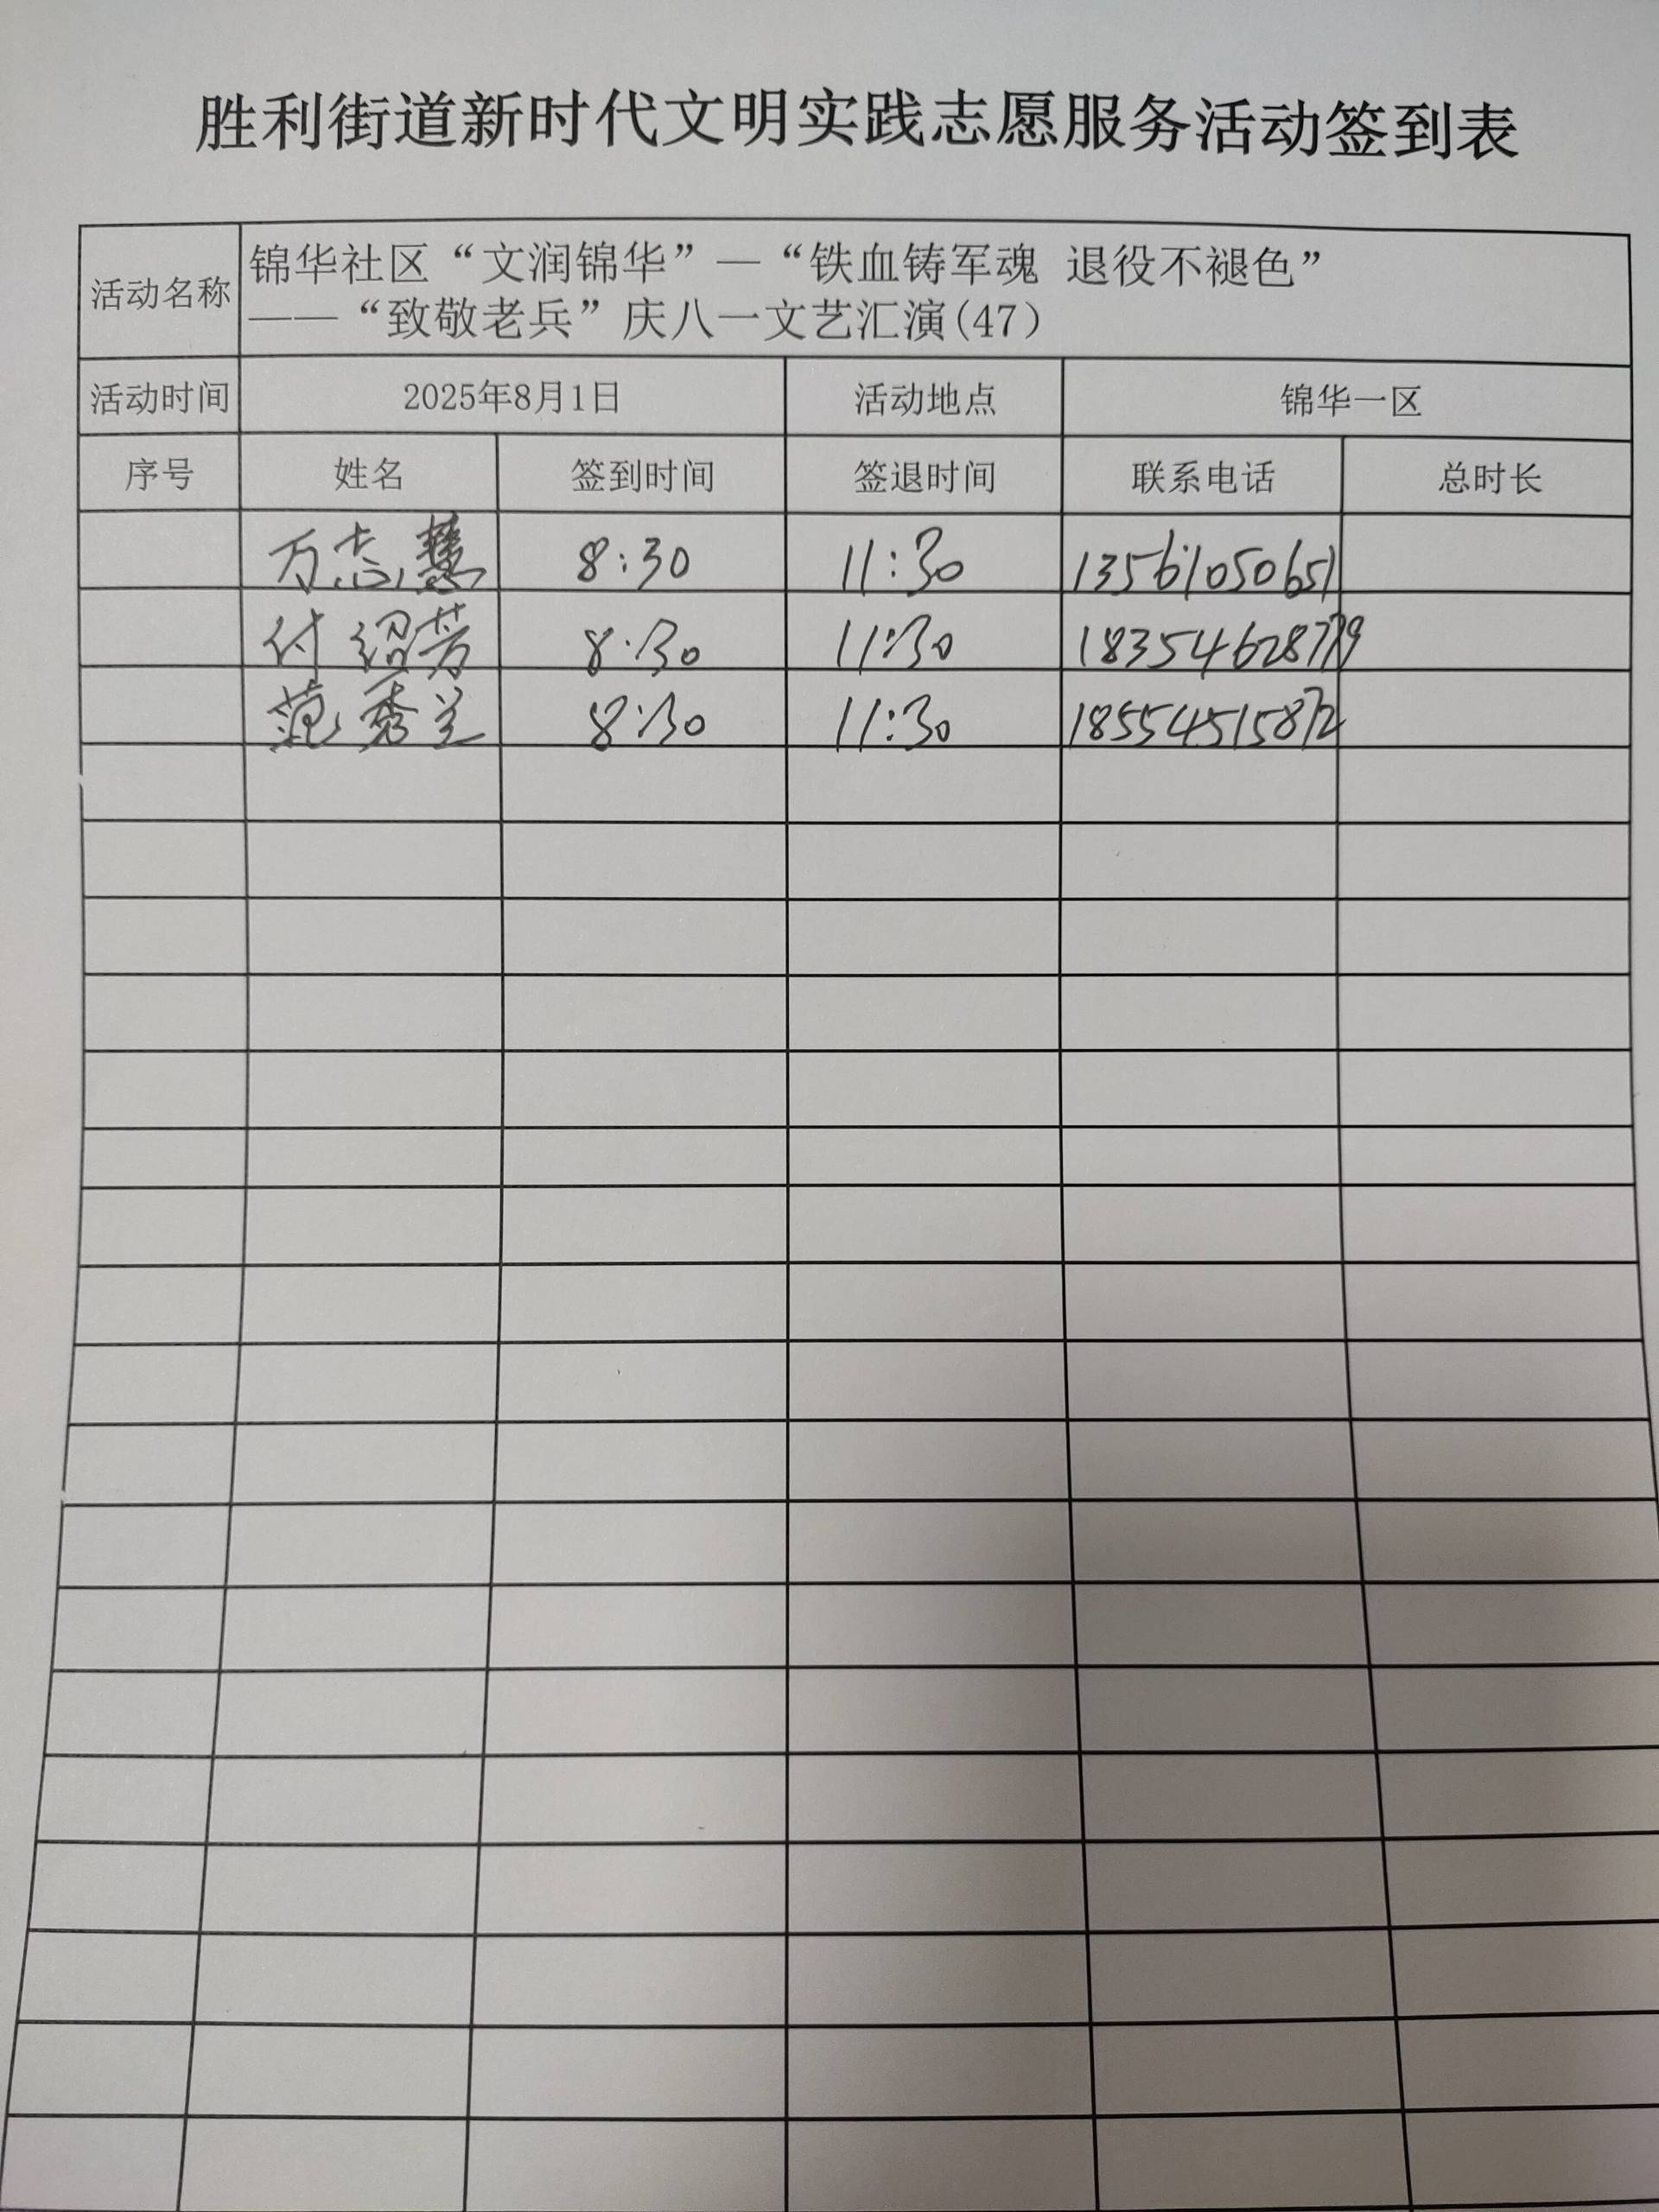 胜利街道新时代文明实践志愿服务活动签到表
活动名称 锦华社区“文润锦华”—“铁血铸军魂 退役不褪色”
——“致敬老兵”庆八一文艺汇演(47)
活动时间 2025年8月1日 活动地点 锦华一区
序号 姓名 签到时间 签退时间 联系电话 总时长
万志慧 8:30 11:30 13561050651
付绍芳 8:30 11:30 18354628779
范秀兰 8:30 11:30 18554515872